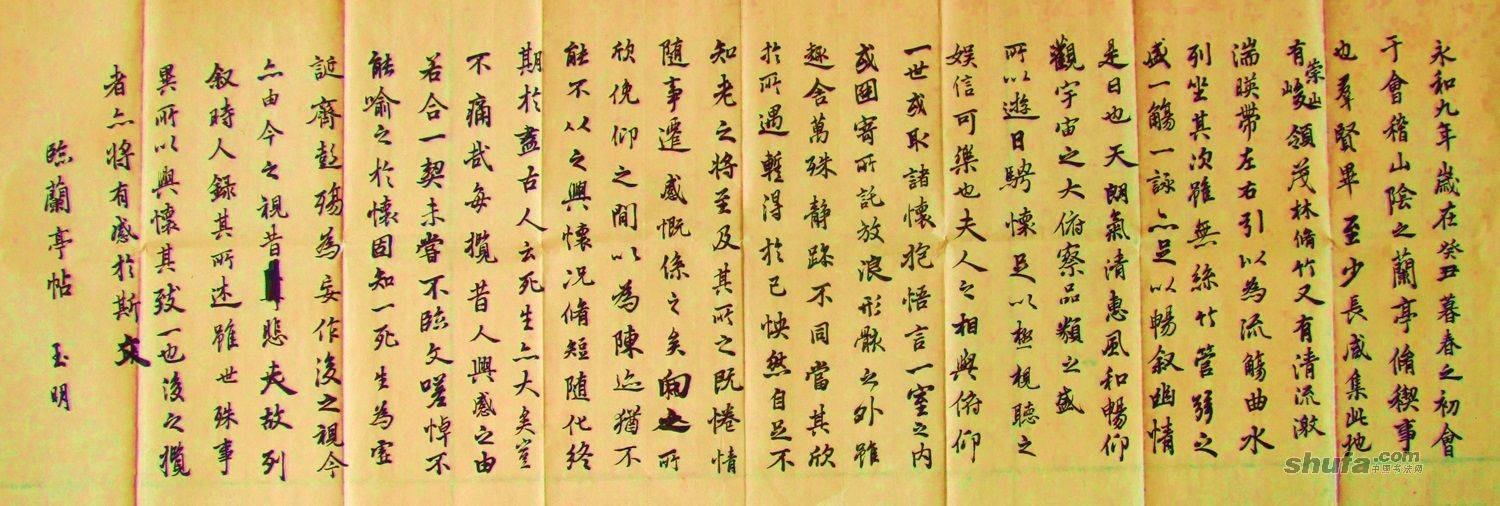 永和九年歲在癸丑暮春之初會
于會稽山陰之蘭亭脩禊事
也羣賢畢至少長咸集此地
有崇山峻領茂林脩竹又有清流激
湍暎帶左右引以為流觴曲水
列坐其次雖無絲竹管弦之
盛一觴一詠亦足以暢叙幽情
是日也天朗氣清惠風和暢仰
觀宇宙之大俯察品類之盛
所以遊目騁懷足以極視聽之
娛信可樂也夫人之相與俯仰
一世或取諸懷抱悟言一室之內
或因寄所託放浪形骸之外雖
趣舍萬殊靜躁不同當其欣
於所遇蹔得於己怏然自足不
知老之將至及其所之既惓情
隨事遷感慨係之矣向之所
欣俛仰之間以為陳迹猶不
能不以之興懷況脩短隨化終
期於盡古人云死生亦大矣豈
不痛哉每攬昔人興感之由
若合一契未嘗不臨文嗟悼不
能喻之於懷固知一死生為虛
誕齊彭殤為妄作後之視今
亦由今之視昔悲夫故列
叙時人錄其所述雖世殊事
異所以興懷其致一也後之攬
者亦將有感於斯文
臨蘭亭帖 玉明
shufa.com
中国书法网